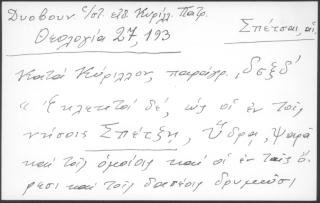 Δυοβουν. ἔ/στ. εἰδ. Κυρίλλ. Πατρ.
Θεολογία 27, 193
Σπέτσαι, αἱ
Κατά Κύριλλον, παράγρ. ͵δσξδ´
« Ἐκλεκτοί δέ, ὡς οἱ ἐν ταῖς
νήσοις Σπέτζῃ, Ὕδρᾳ, Ψαρᾷ
καί ταῖς ὁμοίαις καί οἱ ἐν τοῖς ὄ-
ρεσι καί τοῖς δασέσι δρυμῶσι